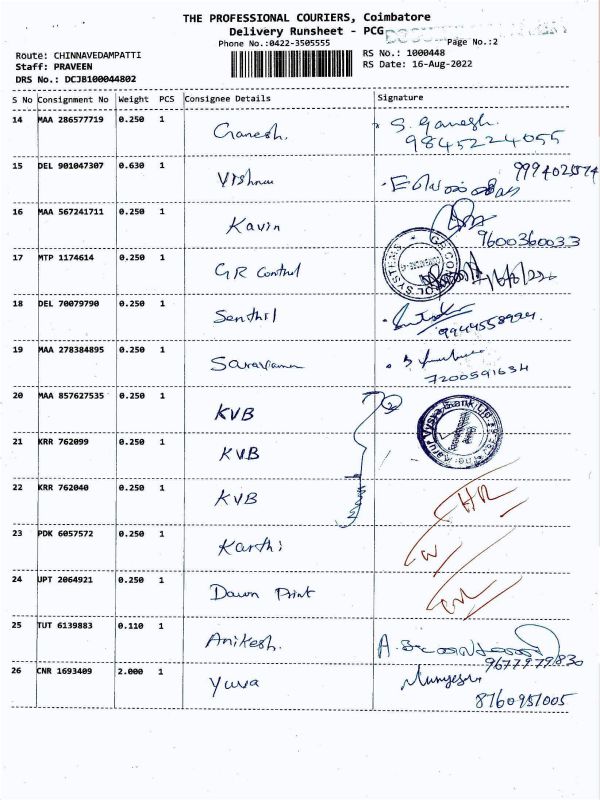 THE PROFESSIONAL COURIERS, Coimbatore
Delivery Runsheet - PCG
Phone No.:0422-3505555
Page No.:2
Route: CHINNAVEDAMPATTI
Staff: PRAVEEN
DRS No.: DCJB100044802
RS No.: 1000448
RS Date: 16-Aug-2022
S No Consignment No Weight PCS Consignee Details Signature
14 MAA 286577719 0.250 1 Ganesh. S. Ganesh.
9845224055
15 DEL 901047307 0.630 1 Vishnu
16 MAA 567241711 0.250 1 Kavin
9600360033
17 MTP 1174614 0.250 1 GR Control
18 DEL 70079790 0.250 1 Senthil
19 MAA 278384895 0.250 1 Saravanan
7200591634
20 MAA 857627535 0.250 1 KVB
21 KRR 762099 0.250 1 KVB
22 KRR 762040 0.250 1 KVB
HR
23 PDK 6057572 0.250 1 Karthi
24 UPT 2064921 0.250 1 Dawn Print
25 TUT 6139883 0.110 1 Anikesh.
9677979830
26 CNR 1693409 2.000 1 Yuva
8760951005